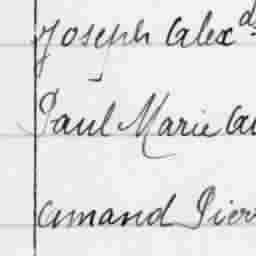 Joseph Alex
Paul Marie
Amand Pierr